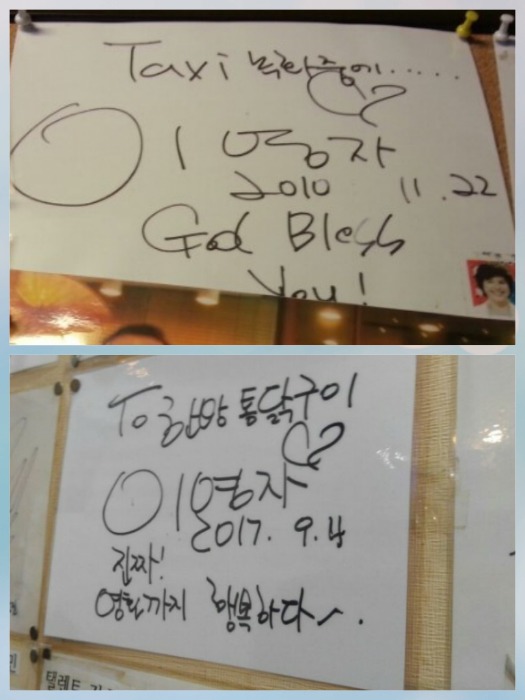 Taxi 녹화중에......
이영자
2010 11.22
God Bless
You!
To 한방 통닭구이
이영자
2017. 9.4
진짜!
영혼까지 행복하다~.
탤런트